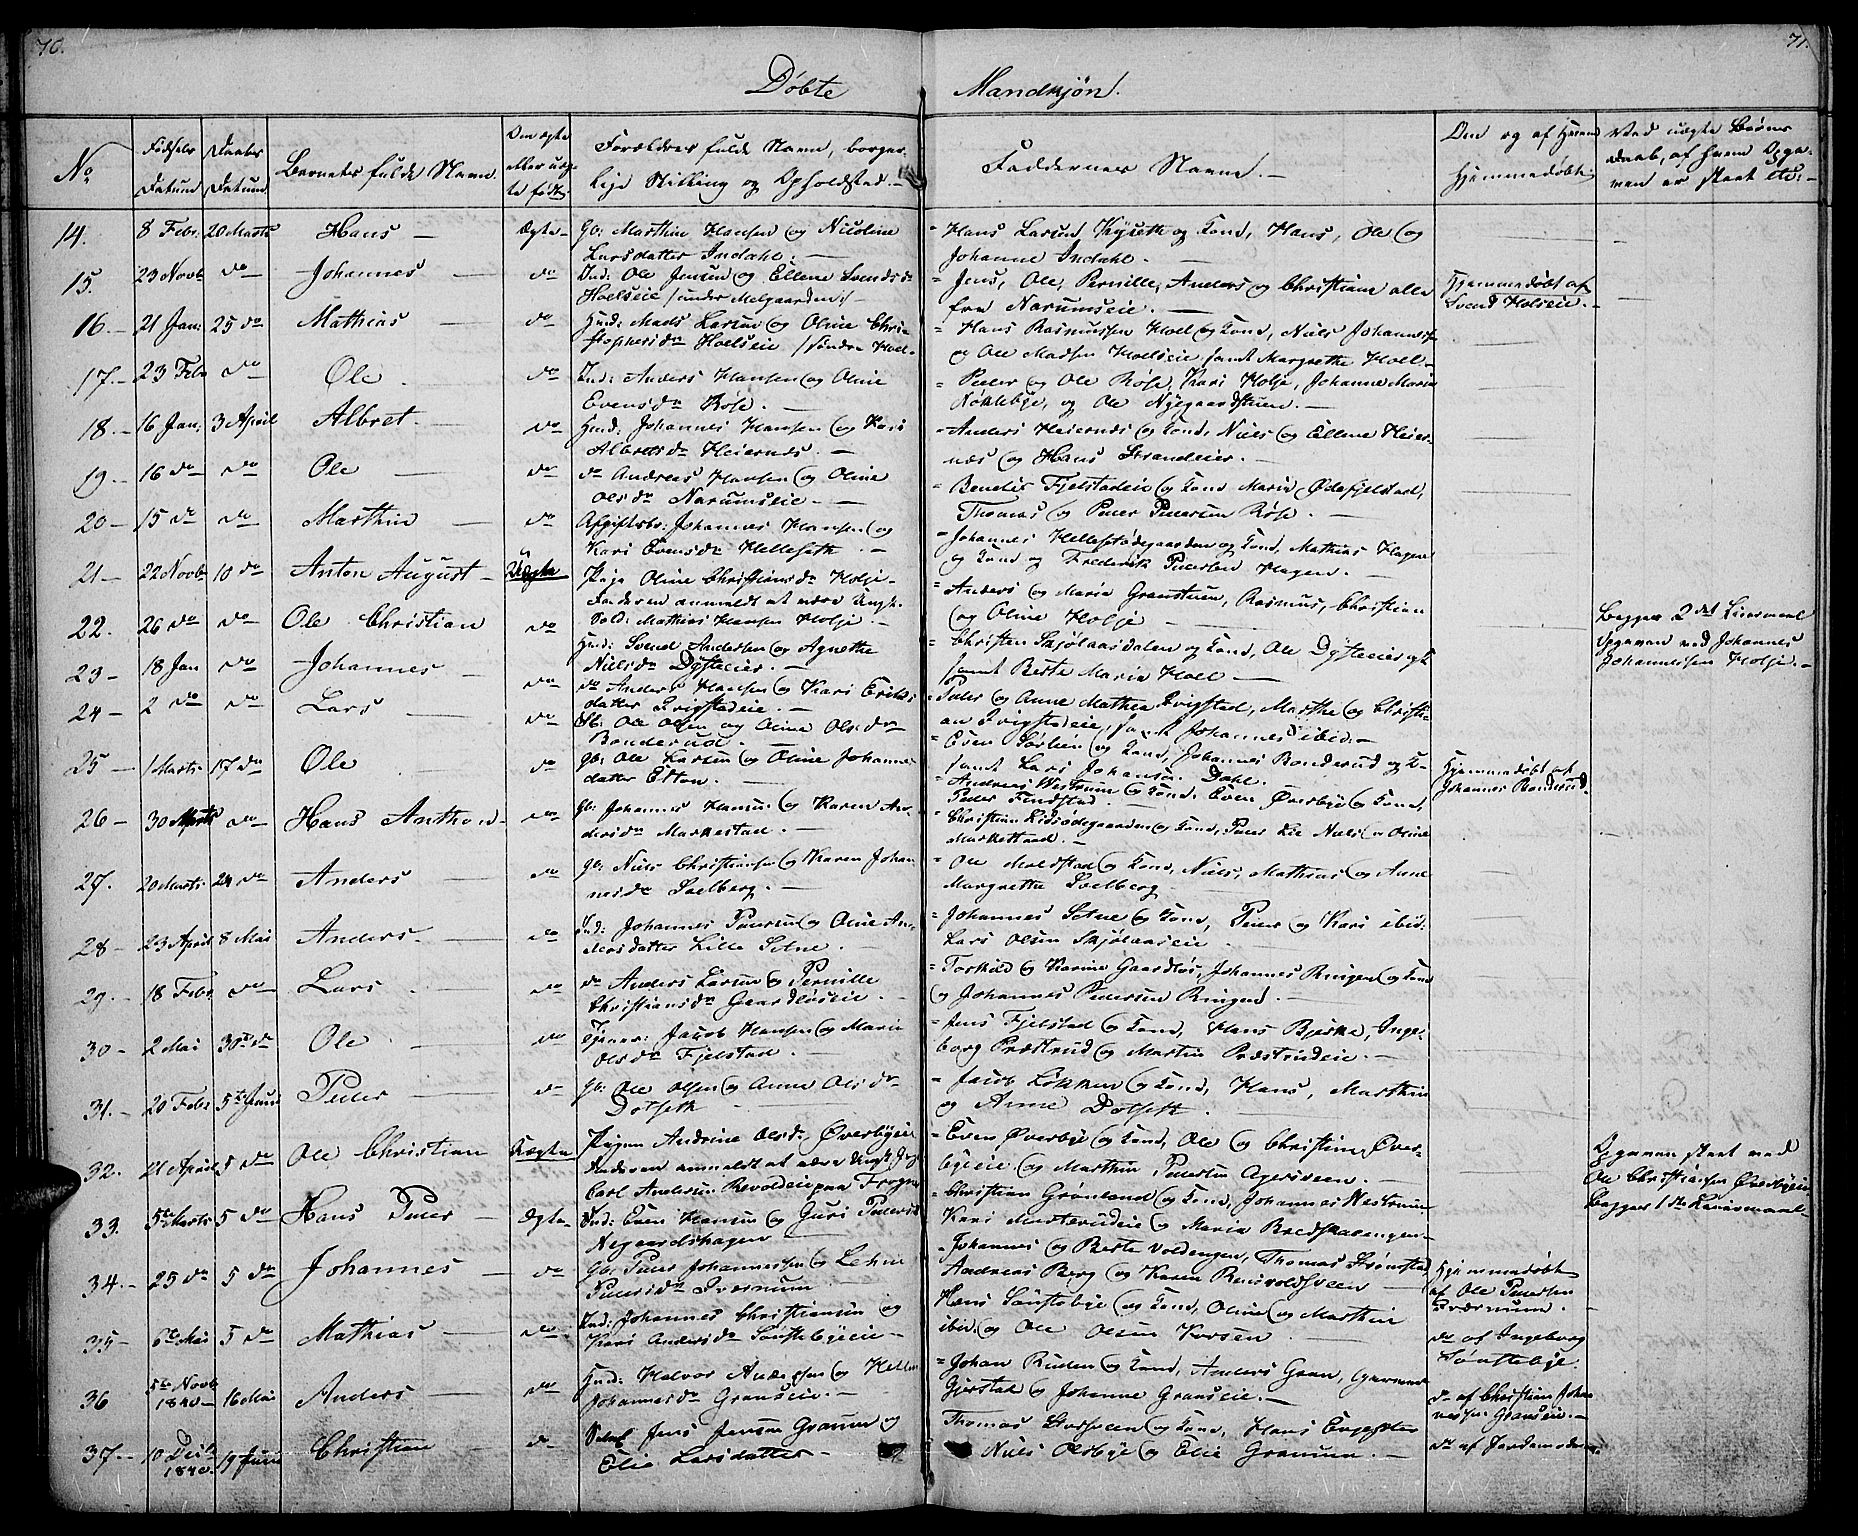 70.
71.
Døbte Mandkjøn.
No
Fødsels Datum
Daabs Datum
Barnets fulde Navn
Om ægte eller uægte født.
Forældres fulde Navn, borgerlige Stilling og Opholdsted.
Faddernes Navne.
Om og af Hvem Hjemmedøbt.
Ved uægte Børns Daab, af hvem Opgaven er skeet etc.
14. 8 Febr. 20 Marts Hans Ægte Gb: Marthin Hansen og Nicoline Larsdatter Indahl. Hans Larsen og Kone, Hans, Ole og Johanne Indahl.
15. 23 Novb do Johannes do Ind: Ole Jensen og Ellene Svendsdr Hoelseie /under Melgaarden/ Jens, Ole, Pernille, Anders og Christiane alle fra Narumseie. Hjemmedøbt af Svend Holseie.
16. 21 Jan: 25 do Mathias do Huusd: Mads Larsen og Oline Christophersdr Hoelseie /søndre Hoel Hans Rasmussen Hoel og Kone, Niels Johannesen og Ole Madsen Hoelseie samt Margrethe Hoel.
17. 23 Febr do Ole do Ind: Anders Hansen og Oline Evensdr Røse. Peder og Ole Røse, Kari Holje, Johanne Maria Nøklebye, og Ole Nygaardstuen.
18. 16 Jan: 3 April Albret do Huusd: Johannes Hansen og Kari Albretsdr Heiernæs. Anders Heiernæs og Kone, Niels og Ellene Heiernæs og Hans Strandeier.
19. 16 do do Ole do do Andreas Hansen og Oline Olsdr Narumseie. Benedis Fjelstadeie og Kone Maria Ødefjelstad, Thomas og Peder Pedersen Røse.
20 15 do do Marthin do Afgiftsbr: Johannes Hansen og Kari Evensdr Helleseth. Johannes Hellestødegaarden og Kone, Mathias Hagen og Kone og Frederik Pedersen Hagen.
21 22 Novb 10 do Anton August Uægte Pige Oline Christiansdr Holje. Faderen anmeldt at være Ungk. Sold: Mathias Hansen Holje. Anders og Maria Granstuen, Rasmus, Christian og Oline Holje Begges 2det Leiermaal Opgaven ved Johannes Johannessen Holje.
22. 26 do do Ole Christian do Huusd: Svend Andersen og Agnethe Nielsdr Dysteeier. Christen Skjølaasdalen og Kone, Ole Dysteeier og K samt Berte Maria Hoel
23 18 Jan do Johannes do do Anders Hansen og Kari Eriksdatter Frigstadeie. Peder og Anne Mathea Frigstad, Marthe og Christian Frigstadeie, samt Johannes ibid.
24 2 do do Lars do Ole Olsen og Oline Olsdr Bonderud. Even og Kone, Johannes Bonderud og K samt Lars Johansen Dahl. Hjemmedøbt af Johannes Bonderud.
25 1 Marts 17 do Ole do Gb: Ole Larsen og Oline Johannesdatter Etton. Andreas Westrum og Kone, Even Øverbye og Kone, Peder Findstad.
26 30 Marts do Hans Anthon do Gb: Johannes Hansen og Karen Andersdr Markestad. Christian Lidsødegaarden og Kone, Peder Lie Niels og Oline Markestad.
27. 20 Marts 24 do Anders do Gb: Niels Christiansen og Karen Johannesdr Soelberg. Ole Moldstad og Kone, Niels, Mathias og Anne Margrethe Soelberg
28 23 April 8 Mai Anders do Ind: Johannes Pedersen og Oline Andersdatter Lille Setne. Johannes Setne og Kone, Peder og Kari ibid: Lars Olsen Skjølaaseie
29. 18 Febr do Lars do do Anders Larsen og Pernille Christiansdr Gaardløseie. Torkild og Karine Gaardløs, Johannes Ringen og Kone og Johannes Pedersen Ringen.
30 2 Mai 30te do Ole do Tjener: Jacob Hansen og Maria Olsdr Fjelstad. Jens Fjelstad og Kone, Hans Bjerke, Ingeborg Præstrud og Martin Præstrudeie.
31. 20 Febr 5te Juni Peder do Gb: Ole Olsen og Anne Olsdr Dotseth Jacob Løkken og Kone, Hans, Marthin og Anne Dotseth.
32. 21 April 5 do Ole Christian Uægte Pigen Andrine Olsdr Øverbyeie Faderen anmeldt at være Ungk. Carl Andersen Revoldeie paa Frogner Even Øverbye og Kone, Ole og Christine Øverbyeie og Marthin Pedersen Opgaven skeet ved Ole Christiansen Øverbyeie Begges 1ste Leiermaal
33. 5te Marts 5 do Hans Peder Ægte Ind: Even Hansen og Guri Pedersdr Negaardshagen Christian Grønland og Kone, Johannes Westrum Kari og Maria Bredskavengen
34. 25 do 5 do Johannes do Gb: Peder Johannessen og Lehne Pedersdr Sværnum Johannes og Berte Voldengen, Thomas Strømstad Andreas Berg og Karen Reinsvoldsveen Hjemmedøbt af Ole Pedersen Sværnum.
35 6te Mai 5 do Mathias do Ind: Johannes Christiansen og Kari Andersdr Sønstebyeie Hans Sønstebye og Kone, Oline og Marthin ibid: og Ole Olsen Korsen. do af Ingeborg Sønstebye.
36 5te Novb 1840 16 Mai Anders do Huusd: Halvor Andersen og Johannesdr Granseie. Johan Ruden og Kone, Anders Gran, Gjerstak og Johanne Granseie. do af Christian Johannessen Granseie.
37. 10 Decb 1840. 19 Juni Christian do Jens Jensen Granum og Elie Larsdatter Thomas og Kone, Hans Niels Olsbye og Elie Granum do af Jordemoderen.